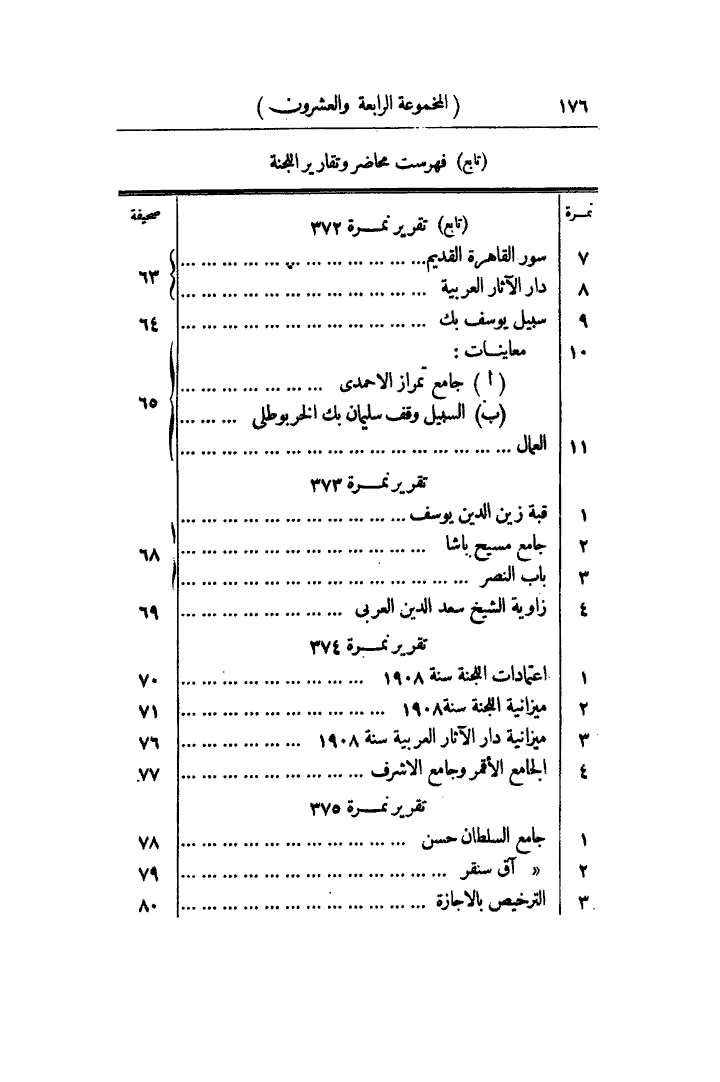 ١٧٦ (المجموعة الرابعة والعشرون)
(تابع) فهرست محاضر وتقارير اللجنة
نمـرة صحيفة
(تابع) تقرير نمـــرة ٣٧٢
٧ سور القاهرة القديم ... ... ... ... ... ... ... ... ... ... ... ...
٨ دار الآثار العربية ... ... ... ... ... ... ... ... ... ... ... ... ٦٣
٩ سبيل يوسف بك ... ... ... ... ... ... ... ... ... ... ... ... ٦٤
١٠ معاينــات :
(أ) جامع تمراز الاحمدى ... ... ... ... ... ... ...
(ب) السبيل وقف سليمان بك الخربوطلى ... ... ... ٦٥
١١ العمال ... ... ... ... ... ... ... ... ... ... ... ... ... ... ... ...
تقرير نمـــرة ٣٧٣
١ قبة زين الدين يوسف ... ... ... ... ... ... ... ... ... ... ...
٢ جامع مسيح باشا ... ... ... ... ... ... ... ... ... ... ... ... ٦٨
٣ باب النصر ... ... ... ... ... ... ... ... ... ... ... ... ... ...
٤ زاوية الشيخ سعد الدين العربى ... ... ... ... ... ... ... ... ٦٩
تقرير نمـــرة ٣٧٤
١ اعتمادات اللجنة سنة ١٩٠٨ ... ... ... ... ... ... ... ... ... ٧٠
٢ ميزانية اللجنة سنة ١٩٠٨ ... ... ... ... ... ... ... ... ... ... ٧١
٣ ميزانية دار الآثار العربية سنة ١٩٠٨ ... ... ... ... ... ... ٧٦
٤ الجامع الأقمر وجامع الاشرف ... ... ... ... ... ... ... ... ... ٧٧
تقرير نمـــرة ٣٧٥
١ جامع السلطان حسن ... ... ... ... ... ... ... ... ... ... ... ٧٨
٢ » آق سنقر ... ... ... ... ... ... ... ... ... ... ... ... ... ٧٩
٣ الترخيص بالاجازة ... ... ... ... ... ... ... ... ... ... ... ... ٨٠